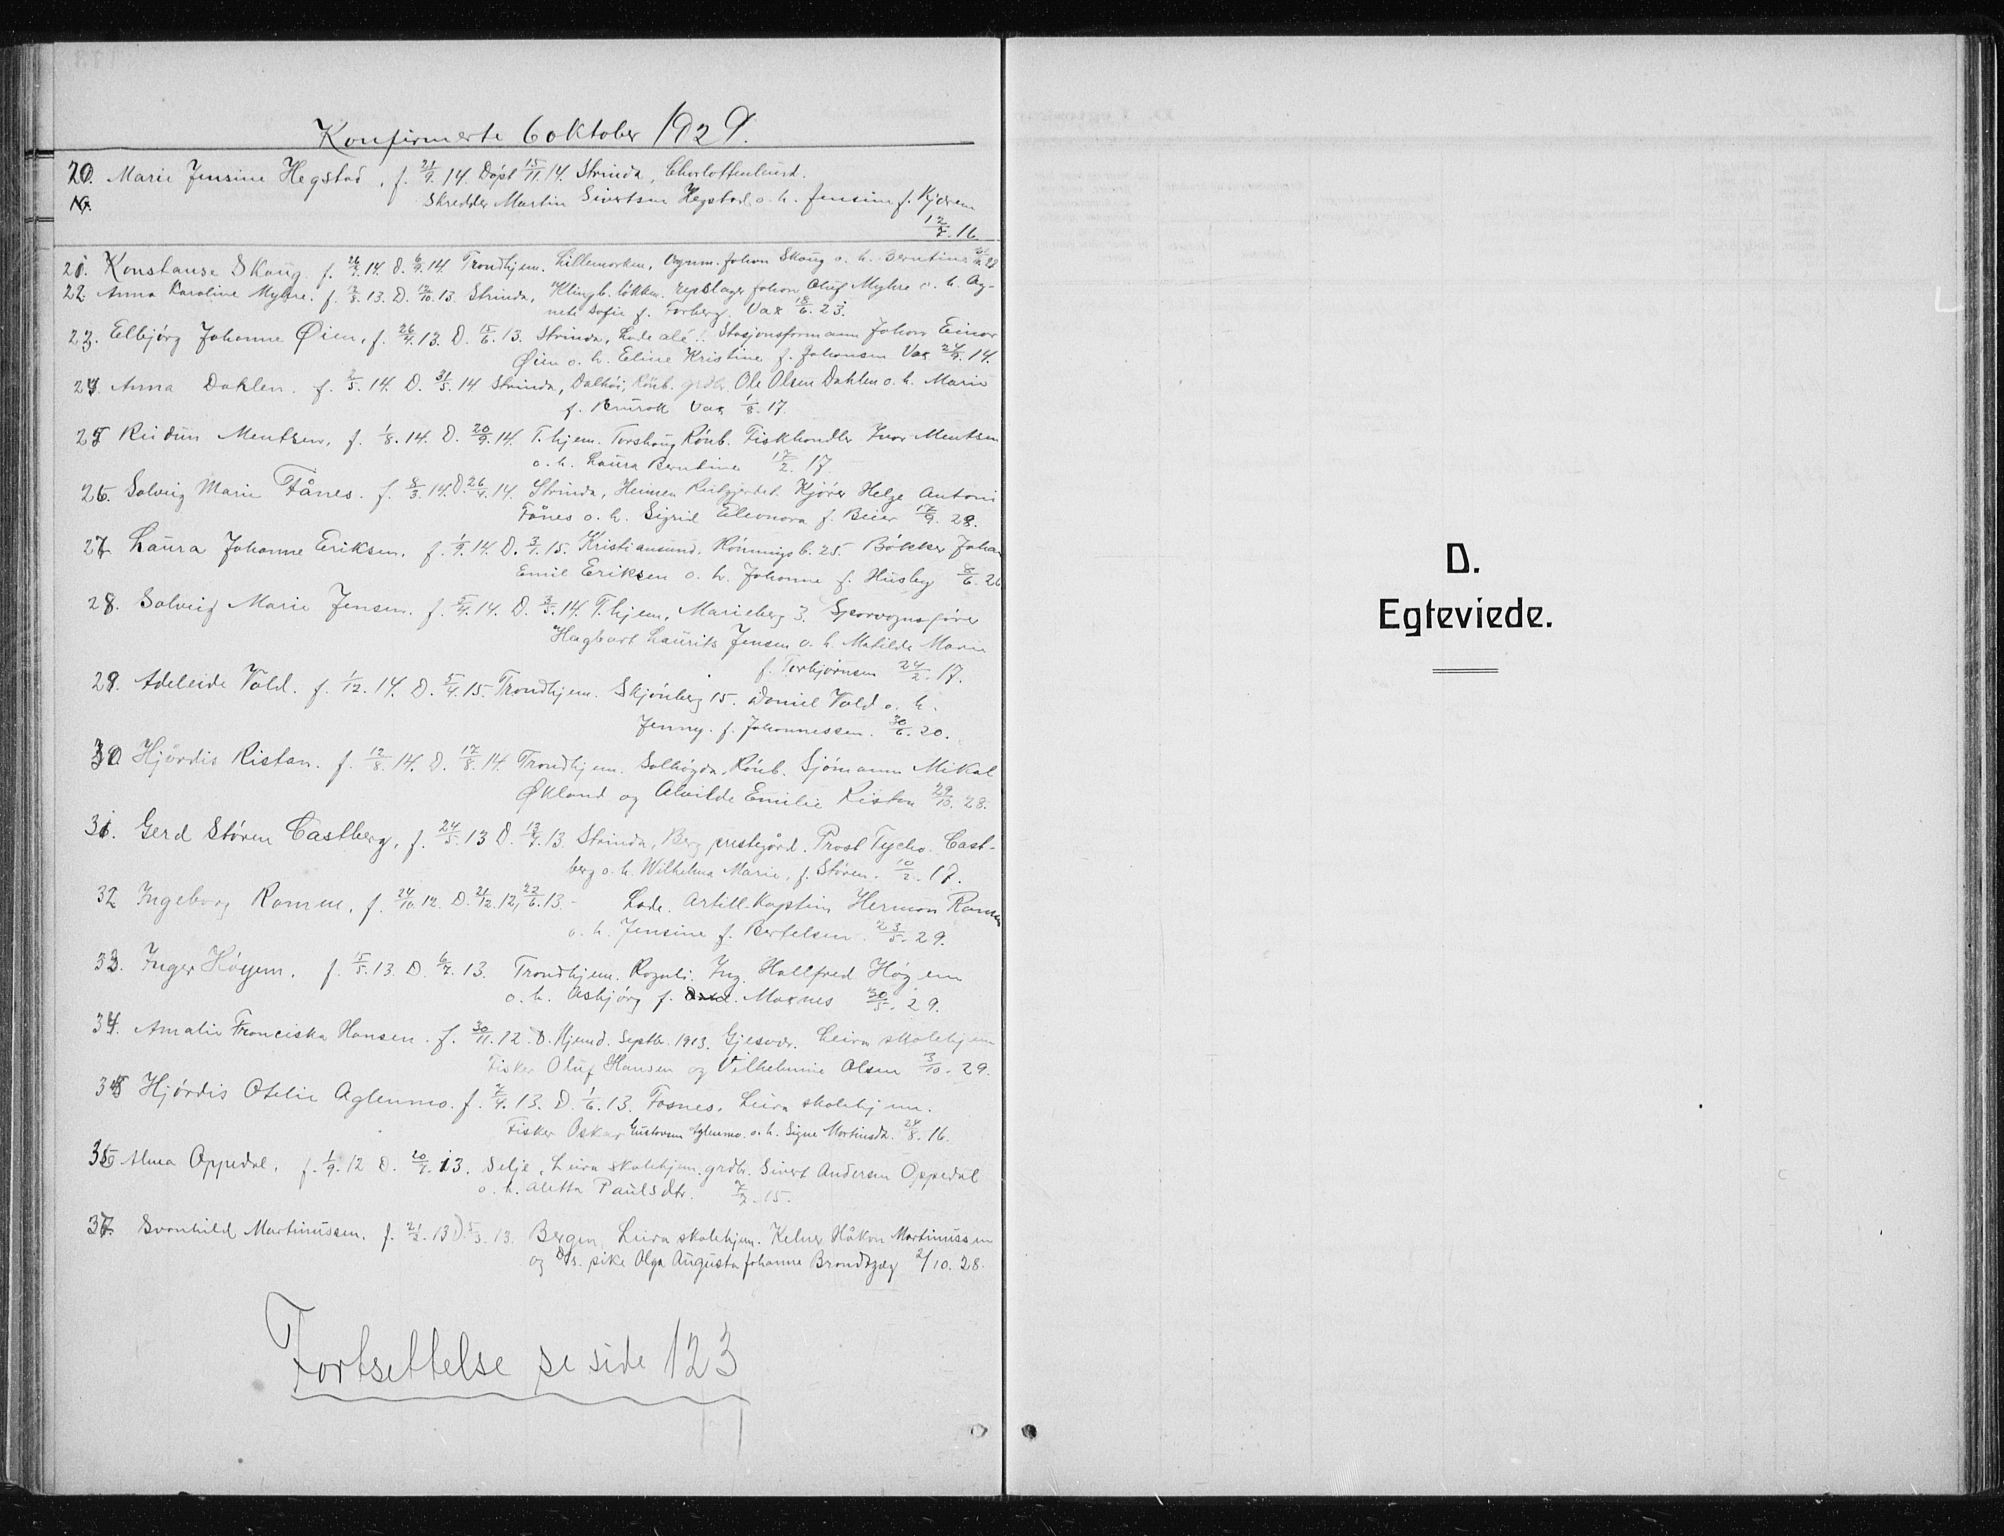 Konfirmerte 6 oktober 1929.
20. Marie Jensine Hegstad, f. 21/9. 14. Døpt 15/11. 14. Strinda, Charlottenlund.
Skredder Martin Sivertsen Hegstad o. h. Jensine f. Kjerem
12/7. 16.
21. Konstanse Skaug. f. 26/7. 14. D. 6/9. 14. Trondhjem. Lillemarken, Johan Skaug o. h. Berntine
22. Anna Karoline Myhre. f. 7/8. 13. D. 12/10. 13. Strinda, Klingb. løkken. repslager Johan Oluf Myhre o. h. Ag-
nete Sofie f. Forberg. Vax 18/6. 23.
23. Elbjørg Johanne Øien, f. 26/4. 13. D. 15/6. 13. Strinda, Lade alé. Stasjonsformann Johan Einar
Øien o. h. Eline Kristine f. Johansen Vax 24/9. 14.
24. Anna Dahlen. f. 2/5. 14. D. 31/5. 14 Strinda, Dalhøi, Rønb. grdbr. Ole Olsen Dahlen o. h. Marie
f. Brurok Vax 1/8. 17.
25 Reidun Mentsen, f. 1/8. 14. D. 20/9. 14. T.hjem. Torshaug Rønb. Fiskhandler Ivar Mentsen
o. h. Laura Berntine 17/2. 17.
26. Solveig Marie Fånes. f. 8/3. 14. D. 26/4. 14. Strinda, Heimen Kjører Helge Antoni
Fånes o. h. Sigrid Eleonora f. Beier 17/9. 28.
27. Laura Johanne Eriksen. f. 1/9. 14. D. 3/1. 15. Kristiansund. Rønningsb. 25 Bøkker Johan
Emil Eriksen o. h. Johanne f. Husby 8/6. 26
28. Solveig Marie Jensen. f. 5/4. 14. D. 3/5. 14. T.hjem, Marieberg 3. Sporvognsfører
Hagbart Laurits Jensen o. h. Matilde Marie
f. Torbjørnsen 24/2. 17.
29. Adeleide Vold. f. 1/12. 14. D. 5/4. 15. Trondhjem. Skjønberg 15. Daniel Vold o. h.
Jenny. f. Johannessen. 30/6. 20.
30 Hjørdis Ristan. f. 12/8. 14. D. 17/8. 14. Trondhjem. Solhøgda, Rønb. Sjømann Mikal
Økland og Alvilde Emilie Ristan 29/10. 28.
31. Gerd Støren Castberg, f. 24/5. 13 D. 13/7. 13. Strinda, Berg prestegård. Prost Tycho Cast-
berg o. h. Wilhelma Marie, f. Støren. 10/2. 17.
32 Ingeborg Ramm, f. 24/10. 12. D. 21/12. 12, 22/6. 13. - Lade. Artill. Kaptein Herman Ramm
o. h. Jensine f. Bertelsen. 23/5. 29.
33. Inger Høyem. f. 5/5. 13. D. 6/7. 13. Trondhjem. Rognli. Ing. Hallfred Høyem
o. h. Asbjørg f. Moxnes 30/5. 29.
34. Amalie Franciska Hansen. f. 30/11. 12. D. Hjemd. Septbr. 1913. Gjesvær. Leira skolehjem
Fisker Oluf Hansen og Vilhelmine Olsen 3/10. 29.
35 Hjørdis Otelie Aglenmo. f. 7/4. 13. D. 1/6. 13. Fosnes. Leira skolehjem.
Fisker Oskar Gustavsen Aglenmo. o. h. Signe Martinsdtr. 24/8. 16.
36 Alma Oppedal. f. 1/9. 12 D. 20/4. 13. Selje, Leira skolehjem. grdbr. Sivert Andersen Oppedal
o. h. Aletta Paulsdtr. 7/2. 15.
37. Svanhild Martinussen. f. 21/2. 13 D. 5/3. 13. Bergen, Leira skolehjem. Kelner Håkon Martinussen
og pike Olga Augusta Johanne 2/10. 28.
Fortsettelse se side 123
D.
Egteviede.